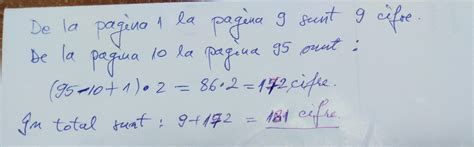 De la pagina 1 la pagina 9 sunt 9 cifre.
De la pagina 10 la pagina 95 sunt :
(95-10+1)•2 = 86•2=172 cifre.
În total sunt : 9+172 = 181 cifre